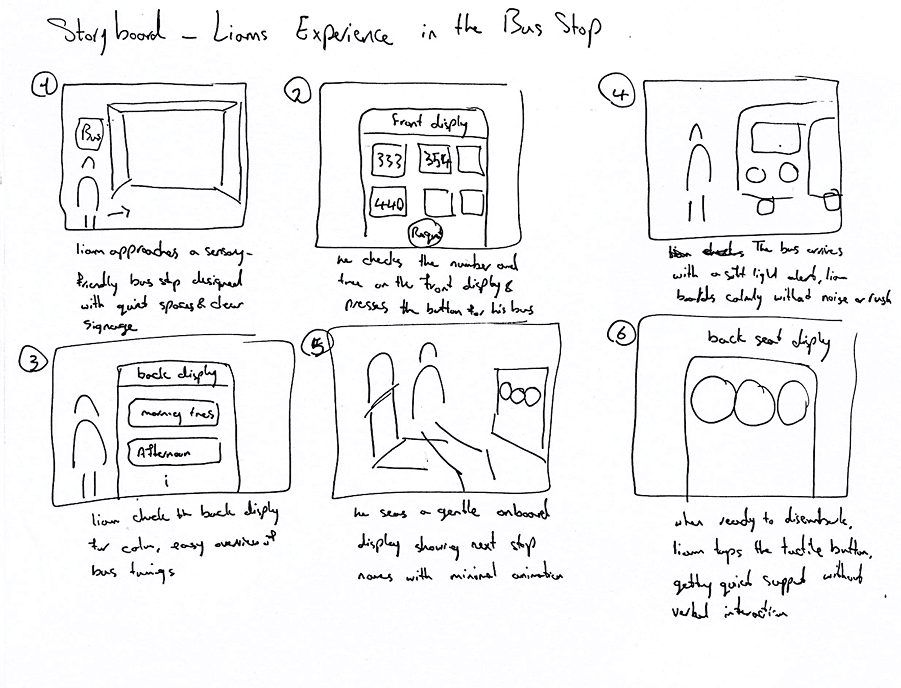 Storyboard – Liams Experience in the Bus Stop
1
Bus
liam approaches a sensory-
friendly bus stop designed
with quiet spaces & clear
signage
2
Front display
333 354
440
Request
he checks the number and
time on the front display &
presses the button for his bus
4
The bus arrives
with a soft light alert, liam
boards calmly without noise or rush
3
back display
morning times
Afternoon
liam check the back display
for calm, easy overview of
bus timings
5
he sees a gentle onboard
display showing next stop
names with minimal animation
6
back seat display
when ready to disembark,
liam taps the tactile button,
getting quick support without
verbal interaction